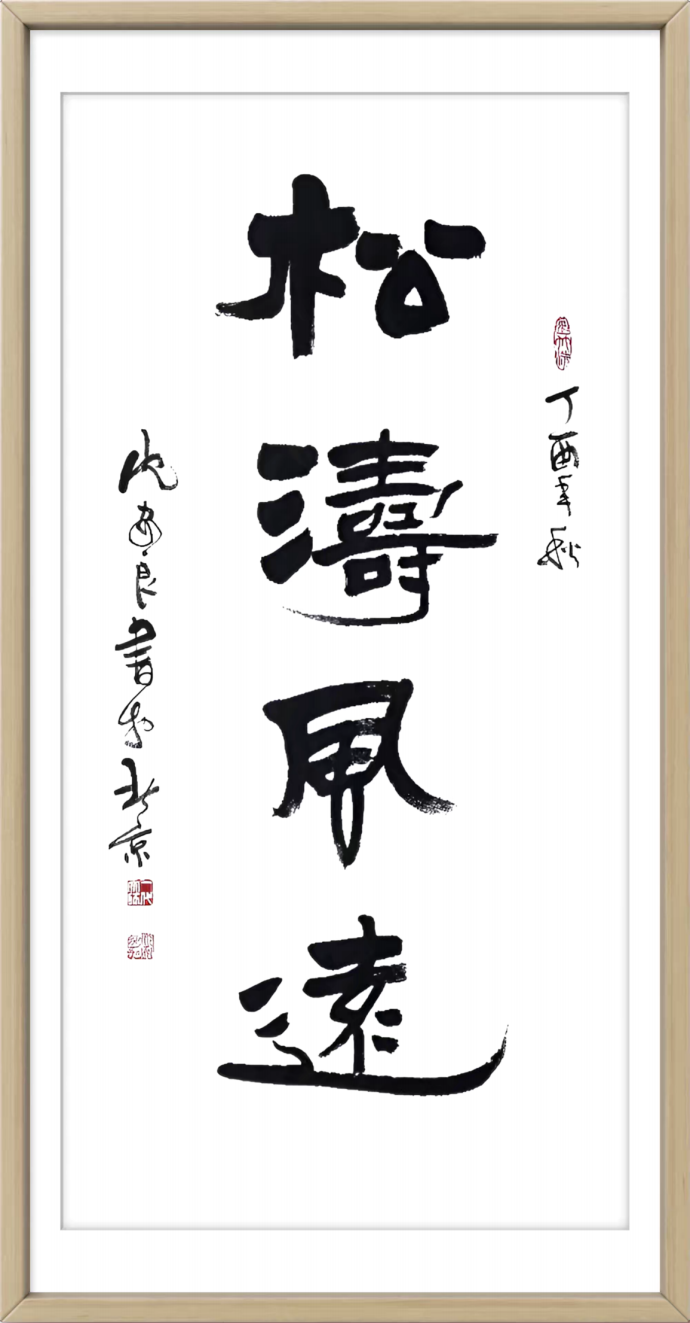 丁酉年秋
松濤風遠
沈安良書於北京